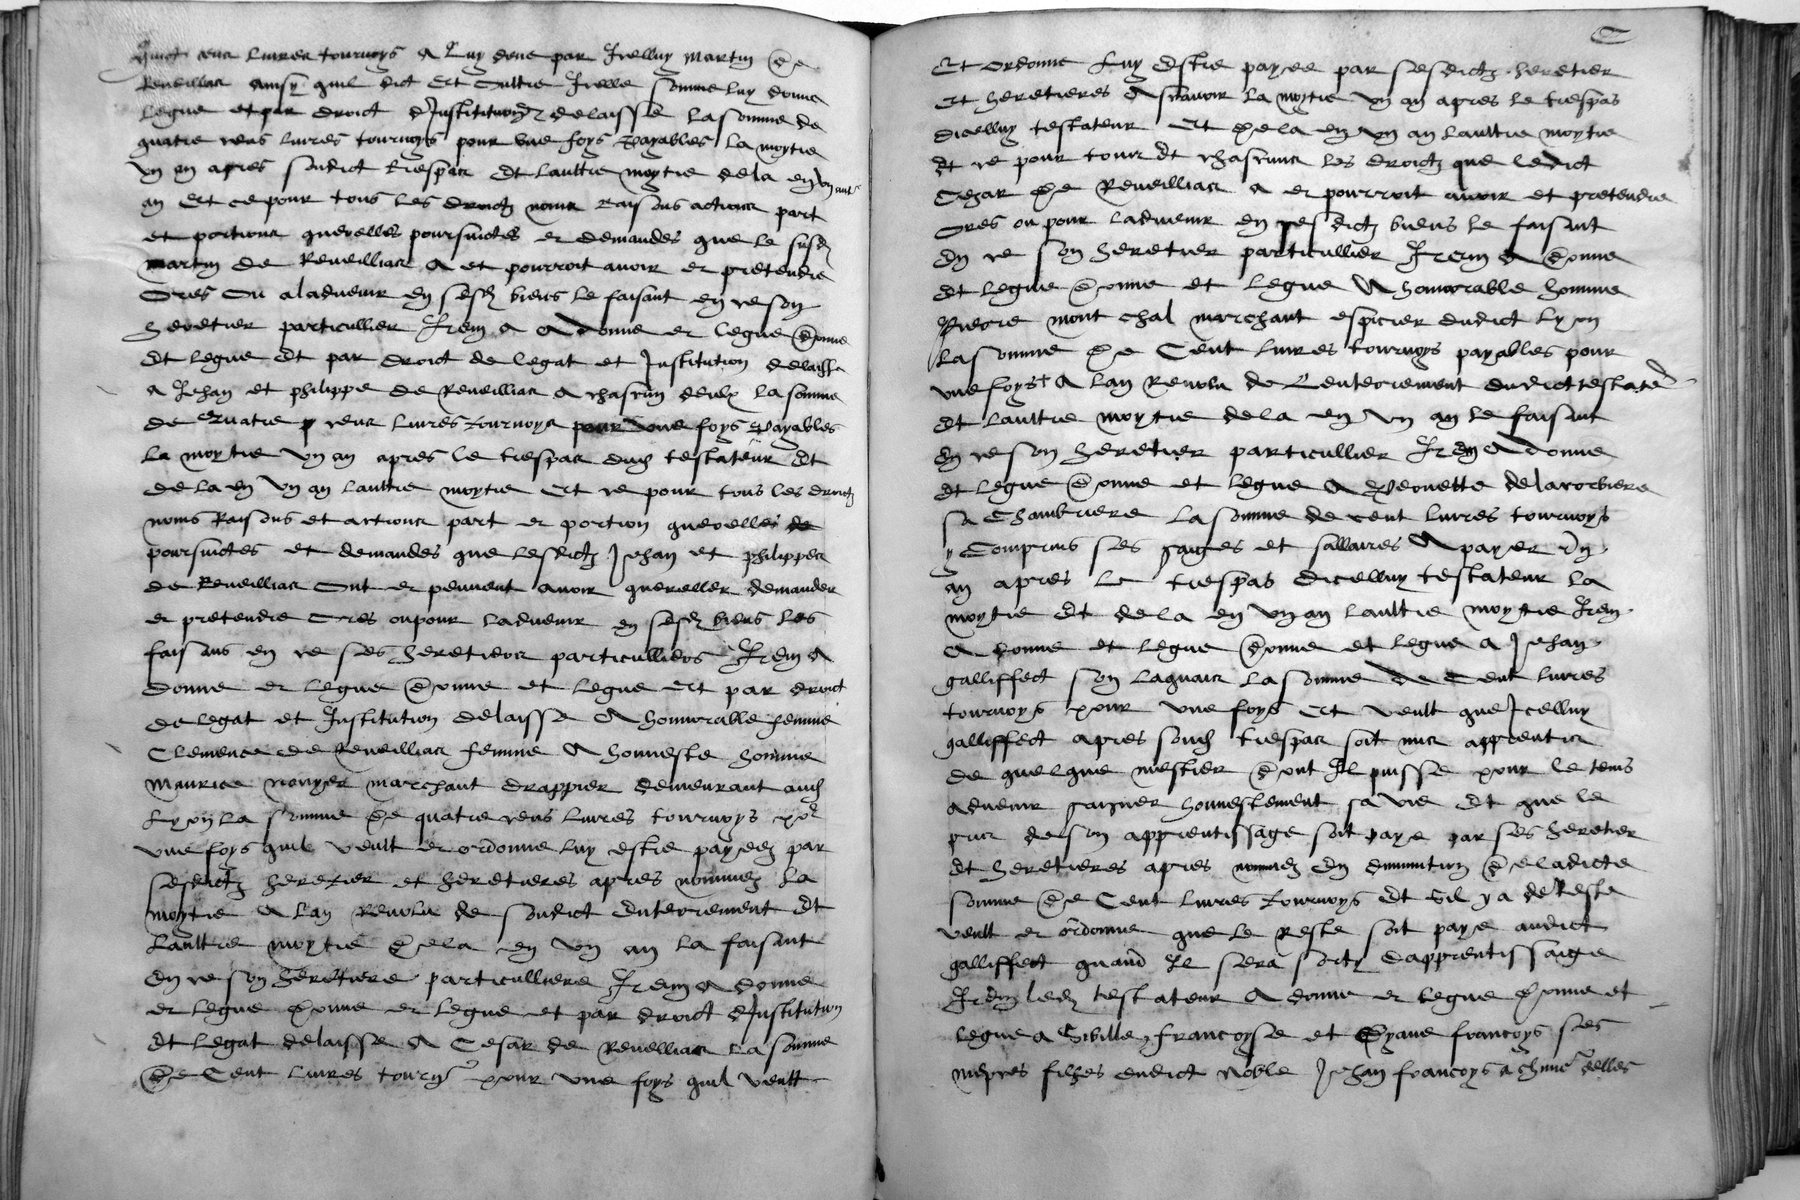 cens livres tournoys a luy deue par icelluy Martin de
Reveilliac ainsy quil dict Et oultre icelle somme luy donne
legue et par droict dinstitution delaisse la somme de
quatre cens livres tournoys pour une foys payables la moytie
un an apres sondict trespas Et laultre moytie dela en un
an Et ce pour tous les droictz noms raisons actions part
et portions querelles poursuictes et demandes que le susd
Martin de Reveilliac a et pourroit avoir et pretendre
ores ou aladvenir en sesd biens le faisant en ce son
heretier particullier Item a donne et legue donne
Et legue Et par droict de legat et institution delaisse
a Jehan et Philippe de Reveilliac a chascun deulx la somme
de quatre cens livres tournoys pour une foys payables
la moytie un an apres le trespas dud testateur Et
dela en un an laultre moytie Et ce pour tous les droictz
noms raisons et actions part et portion querelles de
poursuictes et demandes que lesdictz Jehan et Philippes
de Reveilliac ont et peuvent avoir quereller demander
et pretendre ores ou pour ladvenir en sesd biens les
faisans en ce ses heretiers particulliers Item a
donne et legue donne et legue Et par droict
de legat et institution delaisse a honnorable femme
Clemence de Reveilliac femme a honneste homme
Maurice nouyer marchant drappier demeurant aud
Lyon la somme de quatre cens livres tournoys por
une foys quil veult et ordonne luy estre payeez par
sesdictz heretier et heretieres apres nommez la
moytie a lan revolu de sondict enterrement Et
laultre moytie dela en un an la faisant
en ce son heretiere particulliere Item a donne
et legue donne et legue et par droict dinstitution
Et legat delaisse a Cesar de Reveilliac la somme
de Cent livres tournoys pour une foys quil veult
Et ordonne luy estre payee par sesdictz heretier
Et heretieres Ascavoir la moytie un an apres le trespas
dicelluy testateur Et dela en un an laultre moytie
Et ce pour tous Et chascuns les droictz que ledict
Cezar de Reveilliac a et pourroit avoir et pretendre
ores ou pour ladvenir en sesdictz biens le faisant
en ce son heretier particullier Item a donne
Et legue donne et legue A honnorable homme
Pierre mont chal marchant espicier dudict Lyon
la somme de Cent livres tournoys payables pour
une foys a lan revolu de lenterrement dudict testateur
Et laultre moytie dela en un an le faisant
en ce son heretier particullier Item A donne
Et legue donne et legue a Peonette delacorbiere
sa Chambriere la somme de cent livres tournoys
y Comprins ses gaiges et sallaires A payer un
an apres le trespas dicelluy testateur la
moytie Et dela en un an laultre moytie Item
a donne et legue donne et legue a Jehan
galliffect son laquais la somme de Cent livres
tournoys pour une foys Et veult que icelluy
galliffect apres sond trespas soit mis apprentis
de quelque mestier dont il puisse pour le tems
advenir gaigner honnestement sa vie Et que le
pris de son apprentissage soit paye par ses heretier
Et heretieres apres nommez en diminution deladicte
somme de Cent livres tournoys Et sil y a de reste
veult et ordonne que le reste soit paye audict
galliffect quand il sera sorty dapprentissaige
Item led testateur A donne et legue donne et
legue a Sibille francoyse et Dyane francoys ses
niepces filhes dudict noble Jehan francoys a chune delles